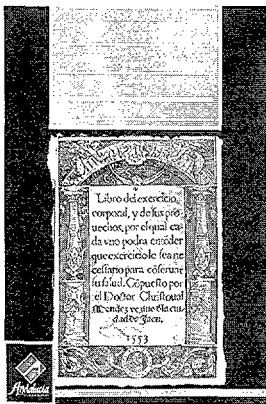 Libro del exercicio
corporal, y de sus pro
uechos, por el qual ca
da vno podra entẽder
que exercicio le sea ne
cessario para cõseruar
su salud. Cõpuesto por
el Doctor Christoual
Mendez vezino dela ciu
dad de Jaen.
1553
Andalucía